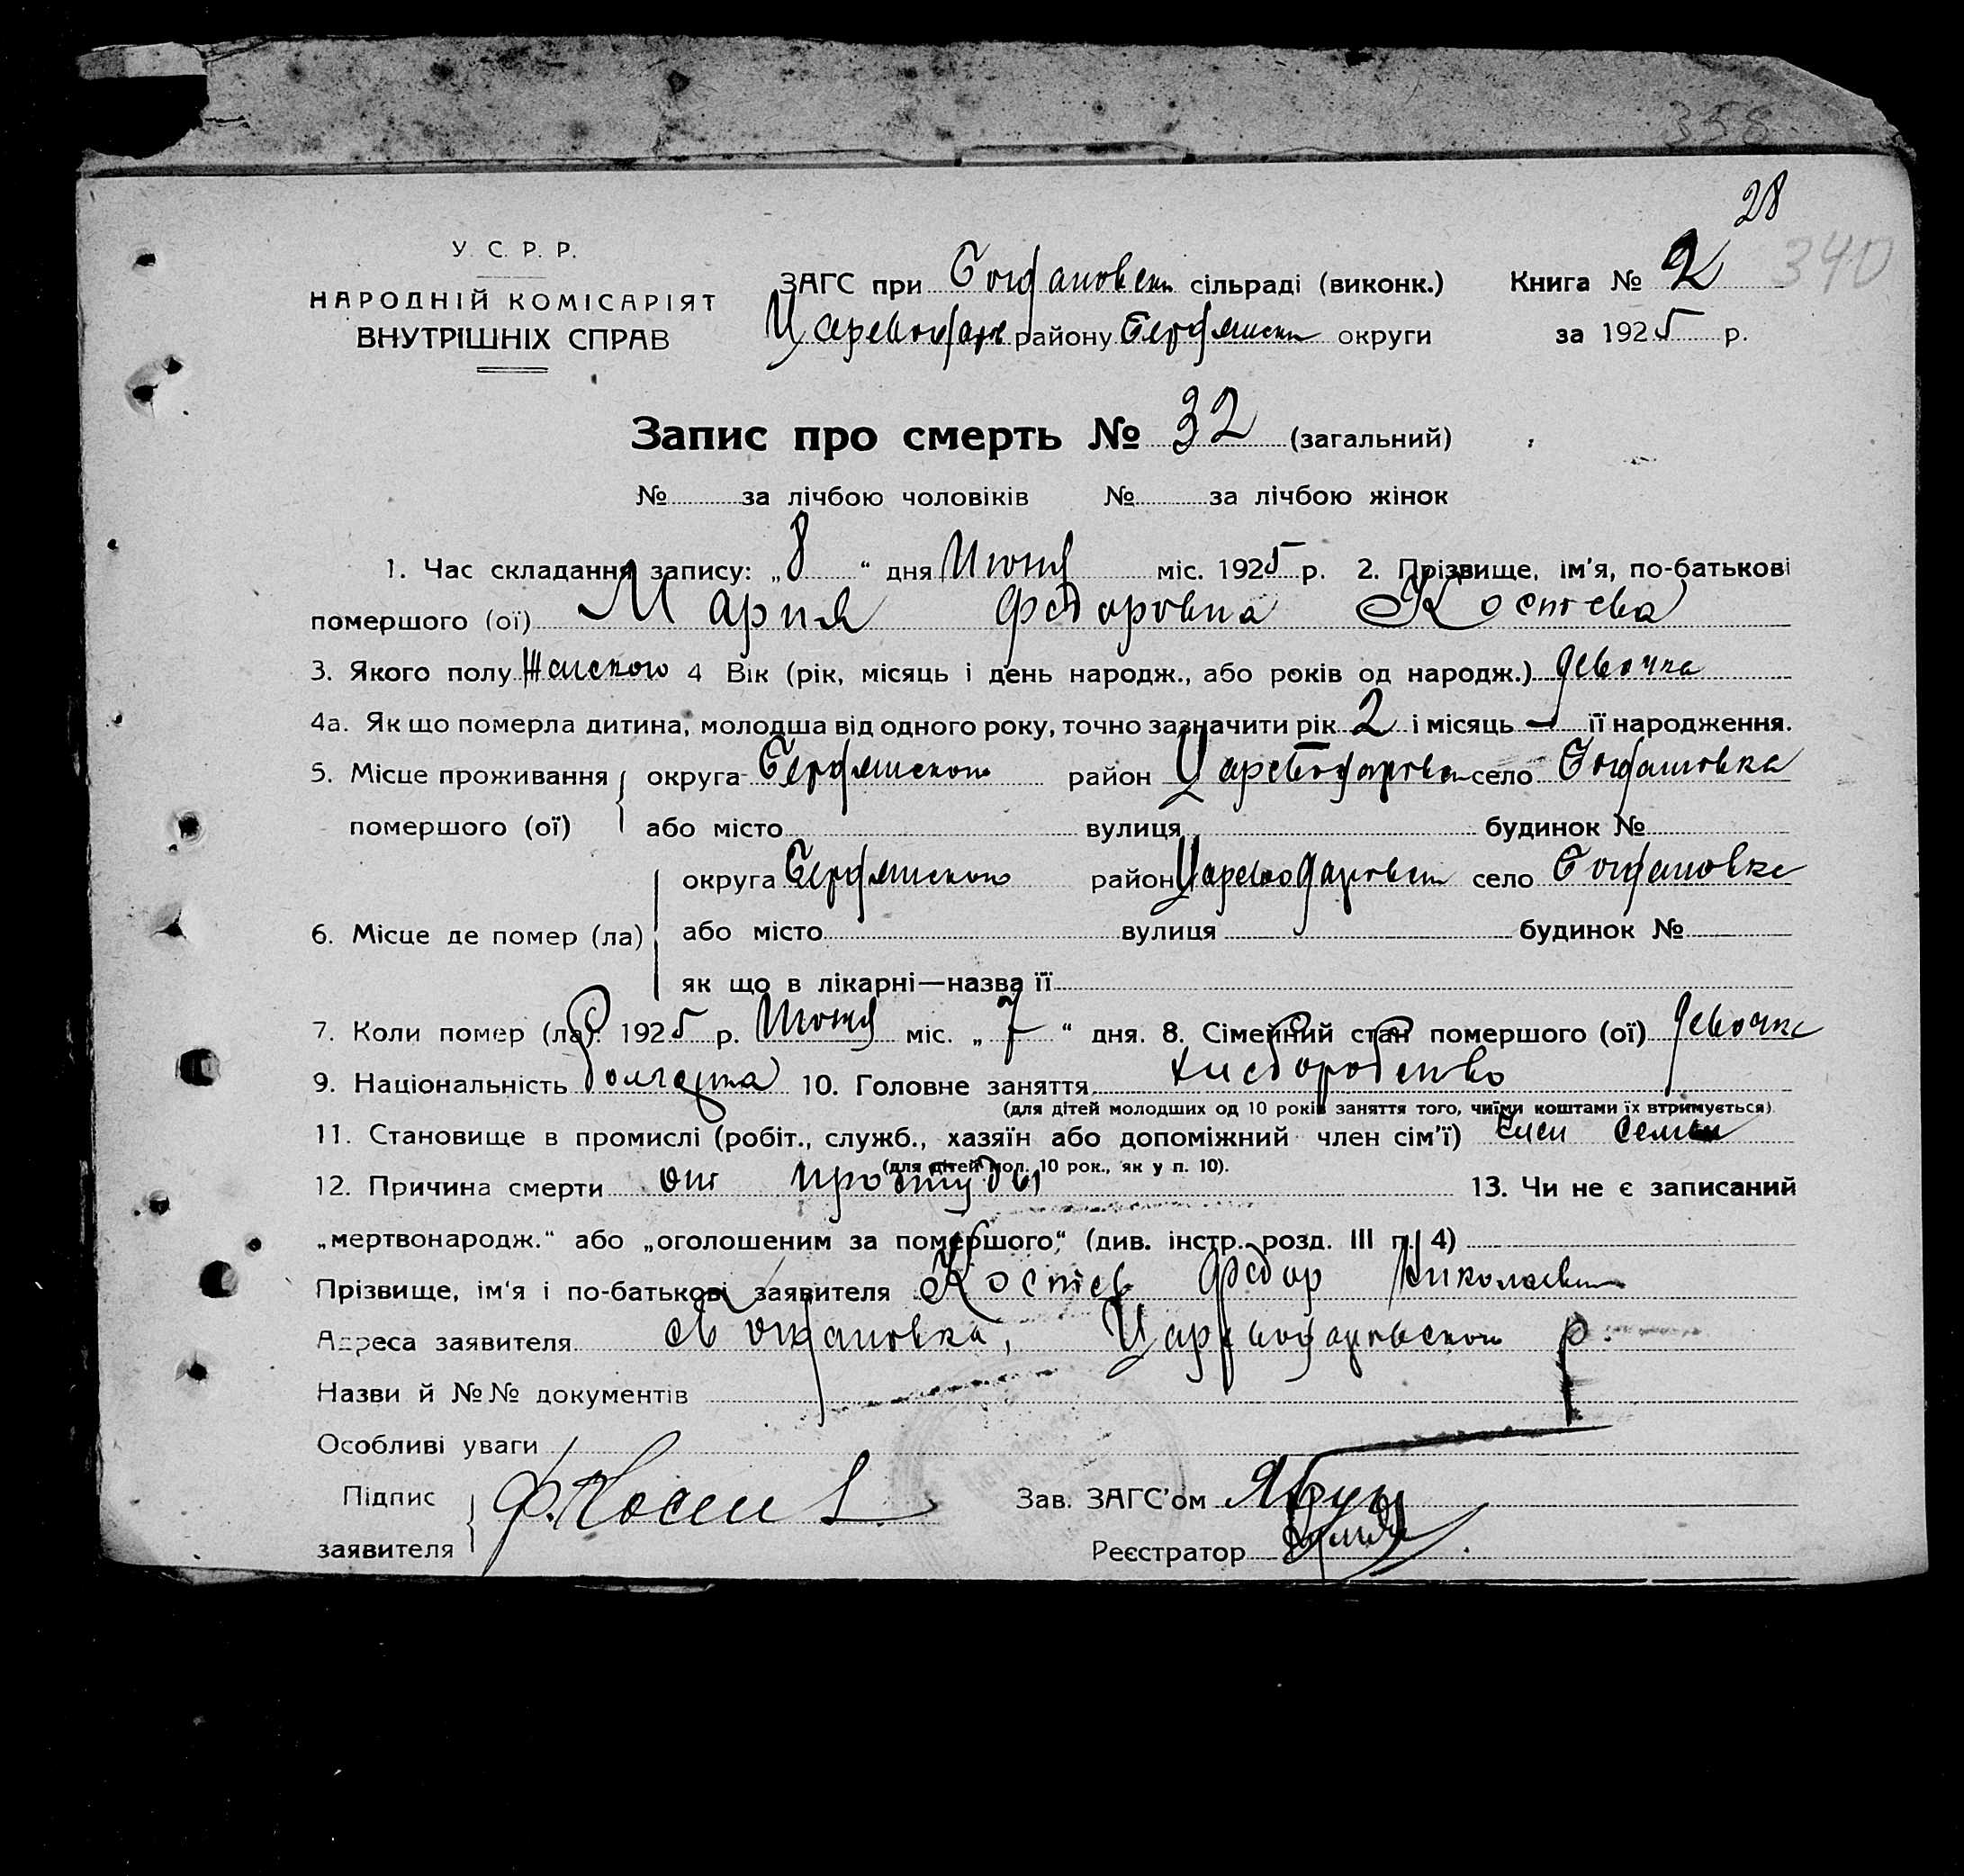 358
28
340
У. С. Р. Р.
НАРОДНІЙ КОМІСАРІЯТ
ВНУТРІШНІХ СПРАВ
ЗАГС при Богдановск сільраді (виконк.) Книга № 2
Цареводар району Бердянск округи за 1925 р.
Запис про смерть № 32 (загальний)
№ за лічбою чоловіків № за лічбою жінок
1. Час складання запису: „8“ дня Июня міс. 1925 р. 2. Прізвище, ім'я, по-батькові
помершого (ої) Мария Федоровна Костева
3. Якого полу Женского 4 Вік (рік, місяць і день народж., або років од народж.) девочка
4а. Як що померла дитина, молодша від одного року, точно зазначити рік 2 і місяць — її народження.
5. Місце проживання округа Бердянского район Царевodаровск село Богдановка
помершого (ої) або місто вулиця будинок №
округа Бердянского район Цареводаровск село Богдановке
6. Місце де помер (ла) або місто вулиця будинок №
як що в лікарні—назва її
7. Коли помер (ла): 1925 р. Июня міс. „7“ дня. 8. Сімейний стан помершого (ої) девочка
9. Національність болгарка 10. Головне заняття хлеборобство
(для дітей молодших од 10 років заняття того, чиїми коштами їх втримується)
11. Становище в промислі (робіт., служб., хазяїн або допоміжний член сім'ї) член семьи
(для дітей мол. 10 рок., як у п. 10).
12. Причина смерти от простуды 13. Чи не є записаний
„мертвонародж.“ або „оголошеним за помершого“ (див. інстр. розд. III п. 4)
Прізвище, ім'я і по-батькові заявителя Костев Федор Николаевич
Адреса заявителя Богдановка, Цареводаровского р.
Назви й №№ документів
Особливі уваги
Підпис Ф. Костев Зав. ЗАГС'ом
заявителя Реєстратор